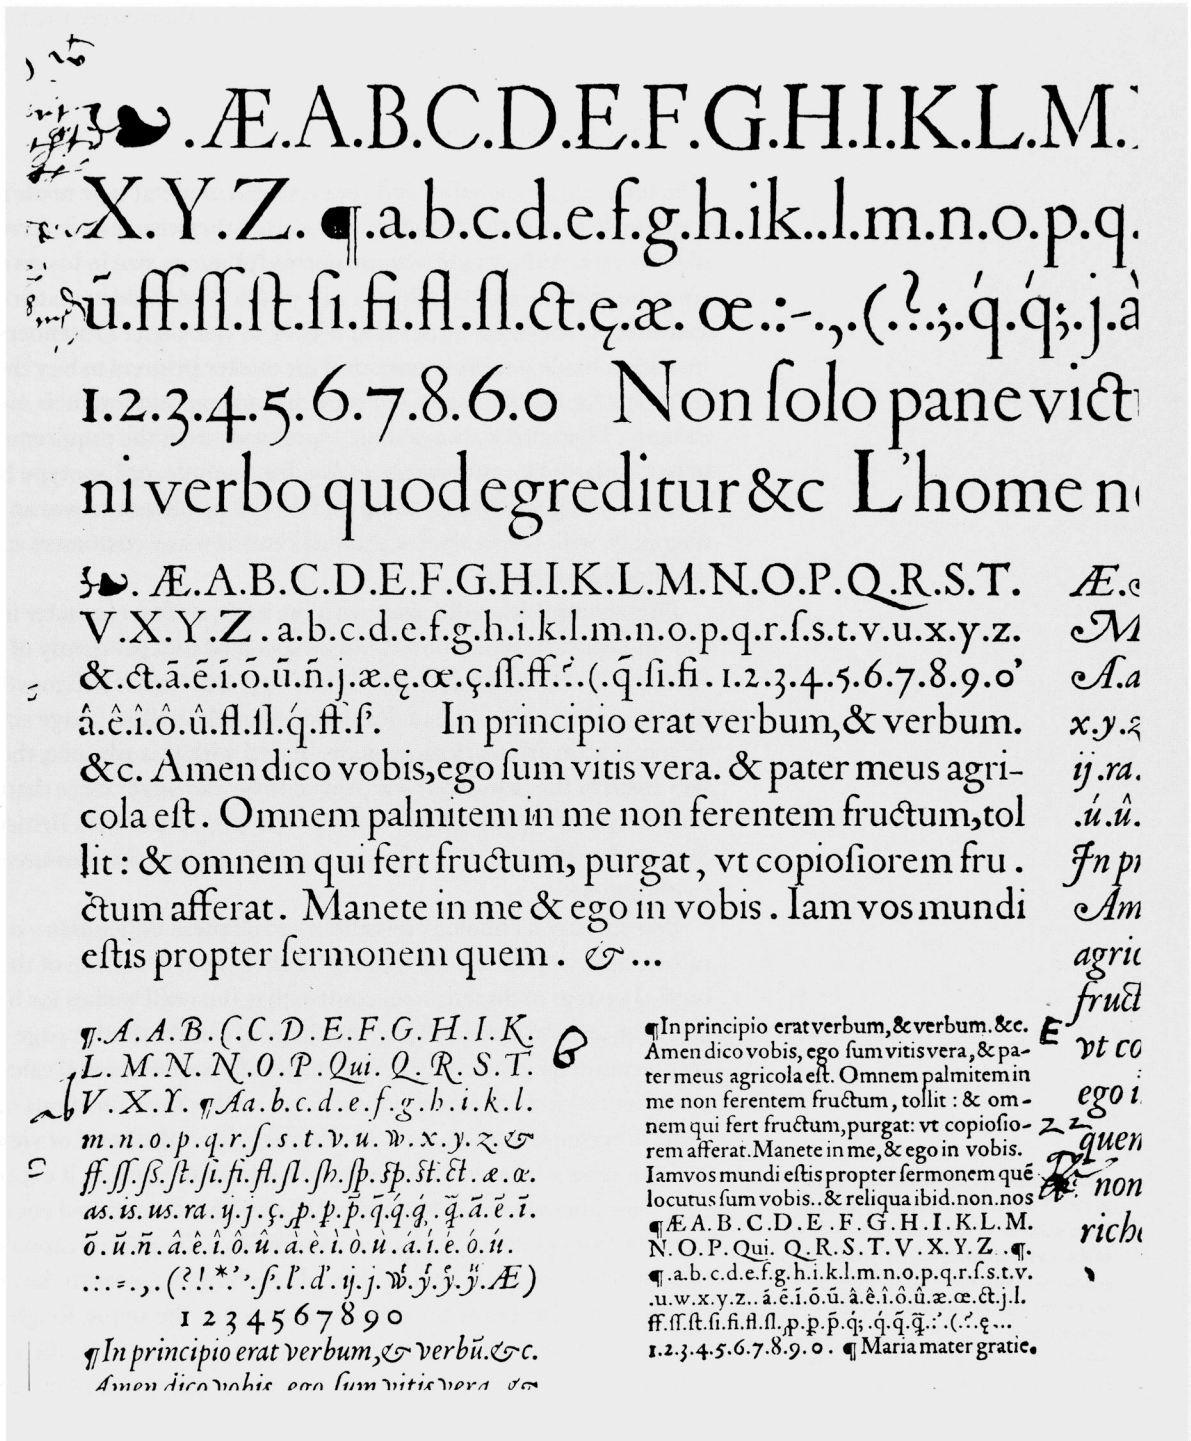 ❧.Æ.A.B.C.D.E.F.G.H.I.K.L.M.
X.Y.Z.¶.a.b.c.d.e.f.g.h.ik..l.m.n.o.p.q.
ũ.ff.ſſ.ſt.ſi.fi.fl.ſl.ct.ę.æ. œ.:-.,.(.?.;.q́.q́;.j.à
1.2.3.4.5.6.7.8.6.0 Non ſolo pane victu
ni verbo quod egreditur &c L'home no
❧. Æ.A.B.C.D.E.F.G.H.I.K.L.M.N.O.P.Q.R.S.T.
V.X.Y.Z.a.b.c.d.e.f.g.h.i.k.l.m.n.o.p.q.r.ſ.s.t.v.u.x.y.z.
&.ct.ã.ẽ.ĩ.õ.ũ.ñ.j.æ.ę.œ.ç.ſſ.ff.:.(.q̃.ſi.fi.1.2.3.4.5.6.7.8.9.0'
â.ê.î.ô.û.fl.ſl.q́.ff.ſ'. In principio erat verbum,& verbum.
&c. Amen dico vobis,ego ſum vitis vera. & pater meus agri-
cola eſt. Omnem palmitem in me non ferentem fructum,tol
lit: & omnem qui fert fructum, purgat, vt copioſiorem fru.
ctum afferat. Manete in me & ego in vobis. Iam vos mundi
eſtis propter ſermonem quem. &...
Æ.
M
A.a
x.y.z
ij.ra.
.ú.û.
In pr
Am
agric
fruct
vt co
ego i
quen
non
rich
¶.A.A.B.C.C.D.E.F.G.H.I.K.
L.M.N.N.O.P.Qui.Q.R.S.T.
V.X.Y.¶Aa.b.c.d.e.f.g.h.i.k.l.
m.n.o.p.q.r.ſ.s.t.v.u.w.x.y.z.&
ff.ſſ.ß.ſt.ſi.fi.fl.ſl.ſh.ſp.sp.st.ct.æ.œ.
as.is.us.ra.ij.j.ç.ꝓ.p.ꝑ.p̃.q̃.q́.q̃.ã.ẽ.ĩ.
õ.ũ.ñ.â.ê.î.ô.û.à.è.ì.ò.ù.á.í.é.ó.ú.
1234567890
¶In principio erat verbum,& verbũ.&c.
Amen dico vobis, ego ſum vitis vera, &
B
ab
¶In principio erat verbum,& verbum.&c.
Amen dico vobis, ego ſum vitis vera, & pa-
ter meus agricola eſt. Omnem palmitem in
me non ferentem fructum, tollit: & om-
nem qui fert fructum, purgat: vt copioſio-
rem afferat. Manete in me, & ego in vobis.
Iam vos mundi eſtis propter ſermonem quẽ
locutus ſum vobis..& reliqua ibid.non.nos
¶ÆA.B.C.D.E.F.G.H.I.K.L.M.
N.O.P.Qui. Q.R.S.T.V.X.Y.Z.¶.
¶.a.b.c.d.e.f.g.h.i.k.l.m.n.o.p.q.r.ſ.s.t.v.
.u.w.x.y.z..ã.ẽ.ĩ.õ.ũ.â.ê.î.ô.û.æ.œ.ct.j.l.
ff.ſſ.ſt.ſi.fi.fl.ſl.ꝓ.p.p̃.q́;.q́.q̃.q̃.:'.(.?.ę...
1.2.3.4.5.6.7.8.9.0. ¶ Maria mater gratie.
E